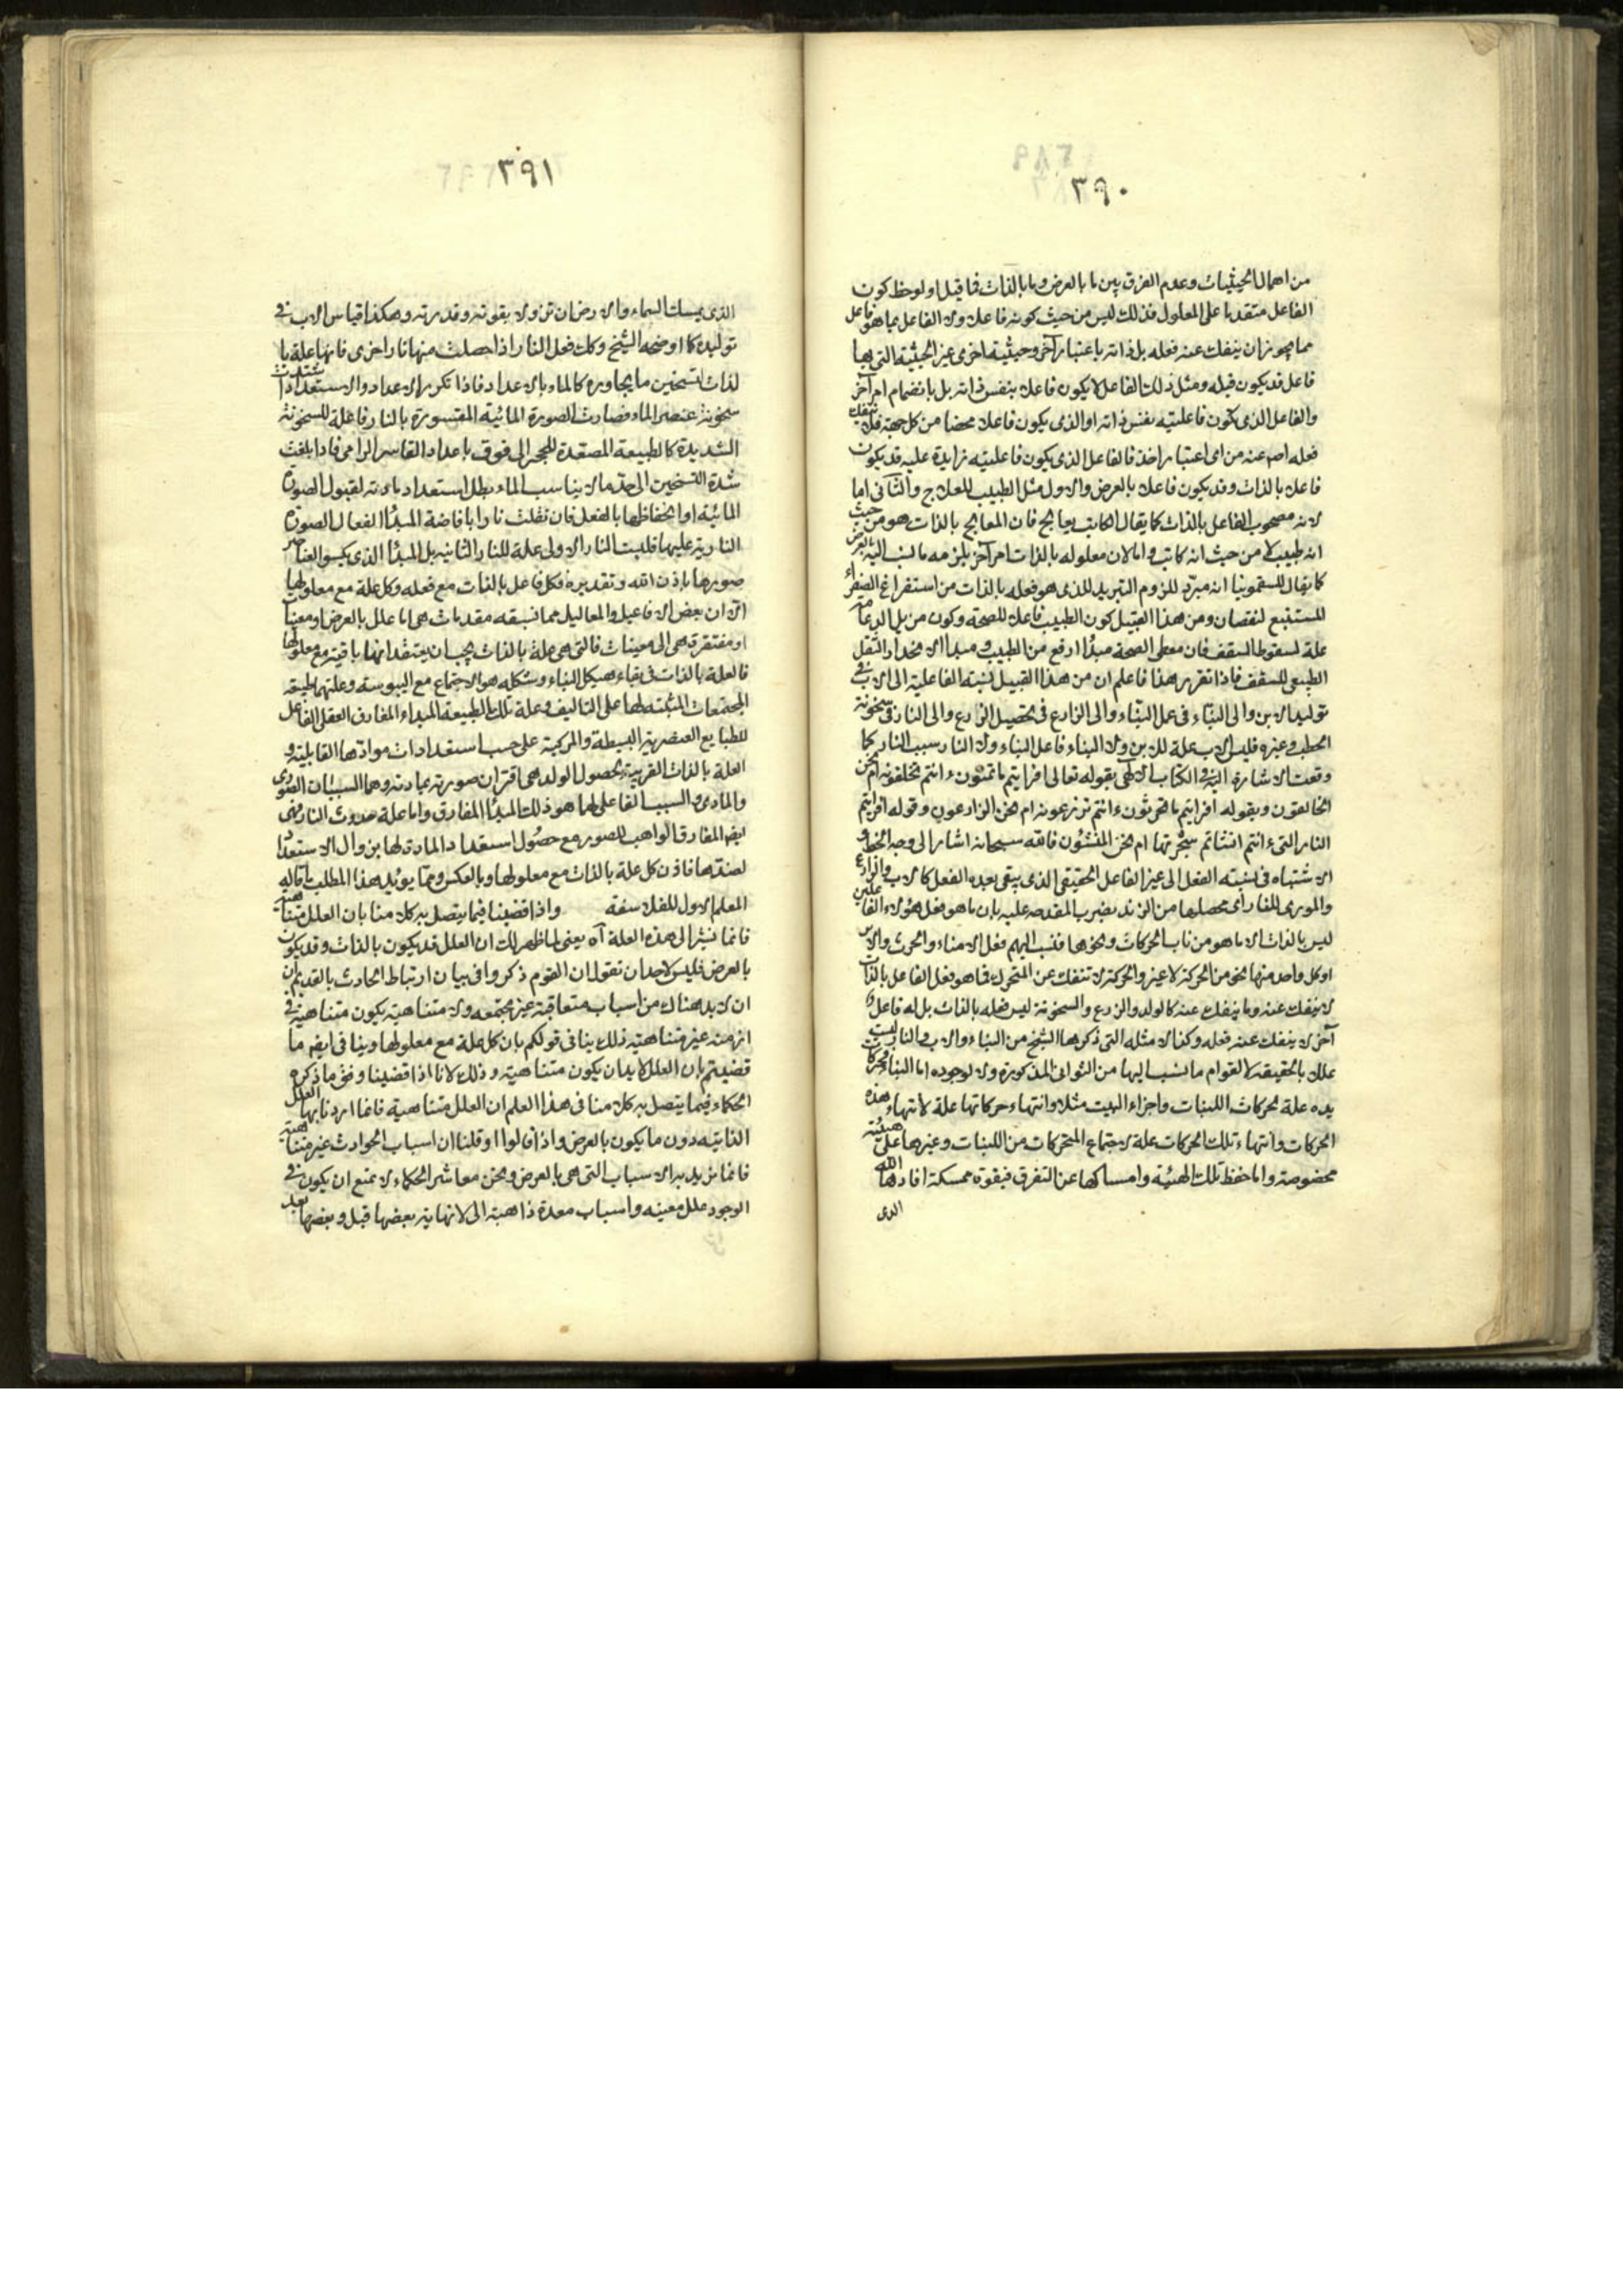 ٣٩٠
من اهمال الحيثيات وعدم الفرق بين ما بالعرض وما بالذات فما قيل او لوحظ كون
الفاعل متقدما على المعلول فذلك ليس من حيث كونه فاعلا ولا الفاعل بما هو فاعل
مما يجوز ان ينفك عنه فعله بل ذاته باعتبار آخر وحيثية اخرى غير الحيثية التى بها
فاعل قد يكون قبله ومثل ذلك الفاعل لا يكون فاعلا بنفس ذاته بل بانضمام امر آخر
والفاعل الذى يكون فاعليته بنفس ذاته او الذى يكون فاعلا محضا من كل جهة فلا ينفك
فعله اصـ عنه من اى اعتبار اخذ فالفاعل الذى يكون فاعليته زايدة عليه قد يكون
فاعلا بالذات وقد يكون فاعلا بالعرض والاول مثل الطبيب للعلاج والثانى اما
لانه مصحوب الفاعل بالذات كما يقال الكاتب يعالج فان المعالج بالذات هو من حيث
انه طبيب لا من حيث انه كاتب واما لان معلوله بالذات امر آخر يلزمه ما نسب اليه بالعرض
كما يقال للسقمونيا انه مبرّد للزوم التبريد للذى هو فعله بالذات من استفراغ الصفراء
المستتبع لنقصان ومن هذا القبيل كون الطبيب فاعلا للصحة وكون مزيل الدعامة
علة لسقوط السقف فان معطى الصحة مبدأ ارفع من الطبيب ومبدأ الانحدار الثقل
الطبيعى للسقف فاذا تقرر هذا فاعلم ان من هذا القبيل نسبة الفاعلية الى الاب فى
توليد الابن والى البنّاء فى عمل البنّاء والى الزارع فى تحصيل الزرع والى النار فى سخونة
الحطب وغيره فليس الاب علة للابن ولا البناء فاعل البناء ولا النار سبب النار كما
وقعت الاشارة اليه فى الكتاب الالهى بقوله تعالى افرايتم ما تمنون ءانتم تخلقونه ام نحن
الخالقون وبقوله افرايتم ما تحرثون ءانتم تزرعونه ام نحن الزارعون وقوله افرايتم
النار التى ءانتم انشاتم شجرتها ام نحن المنشئون فالله سبحانه اشار الى وجه الخطأ و
الاشتباه فى نسبة الفعل الى غير الفاعل الحقيقى الذى يبقى بعده الفعل كالاب والزارع
والمورى للنار أى محصلها من الزند بضرب المقدحة عليه بان ما هو فعل هؤلاء الفاعلين
ليس بالذات الا ما هو من باب الحركات ونحوها فنسب اليهم فعل الامناء والحرث والا
او كل واحد منها نحو من الحركة لا غير والحركة لا تنفك عن المتحرك فما هو فعل الفاعل بالذات
لا ينفك عنه وما ينفك عنه كالولد والزرع والسخونة ليس فعله بالذات بل له فاعل
آخر لا ينفك عنه فعله وكذا الامثلة التى ذكرها الشيخ من البناء والاب والنار ليست
عللا بالحقيقة لا لقوام ما نسب اليها من الثوانى المذكورة ولا لوجوده اما البناء فحركات
يده علة لحركات اللبنات واجزاء البيت مثلا وانتهاء حركاتها علة لانتهاء هذه
الحركات وانتهاء تلك الحركات علة لاجتماع المتحركات من اللبنات وغيرها على هيئة
مخصوصة واما حفظ تلك الهيئة وامساكها عن التفرق فبقوة ممسكة افادها الله
الذى
٣٩١
الذى يمسك السماء والارض ان تزولا بقوته وقدرته وهكذا قياس الاب فى
توليده كما اوضحه الشيخ وكك فعل النار اذا حصلت منها نار اخرى فانها علة با
لذات لتسخين ما يجاوره كالماء بالاعداد فاذا تكرر الاعداد والاستعداد اشتدت
سخونة عنصر الماء فصارت الصورة المائية المقسورة بالنار فاعلة للسخونة
الشديدة كالطبيعة المصعّدة للحجر الى فوق باعداد القاسر الرامى فاذا بلغت
شدة التسخين الى حدّ ما لا يناسب الماء بطل استعداد مادته لقبول الصورة
المائية او انحفاظها بالفعل فانقلبت نارا بافاضة المبدأ الفعال الصورة
النارية عليها فليست النار الاولى علة للنار الثانية بل المبدأ الذى يكسو العناصر
صورها باذن الله وتقديره فكل فاعل بالذات مع فعله وكل علة مع معلولها
الا ان بعض الافاعيل والمعاليل مما تسبقه مقدمات هى اما علل بالعرض او معينات
او مفتقرة هى الى معينات فالتى هى علة بالذات يجب ان يعتقد انها باقية مع معلولها
فالعلة بالذات فى بقاء هيكل البناء وشكله هو الاجتماع مع اليبوسة وعلتهما طبيعة
المجتمعات المثبتة لها على التاليف وعلة تلك الطبيعة المبداء المفارق العقلى الفاعل
للطبايع العنصرية البسيطة والمركبة على حسب استعدادات موادّها القابلية و
العلة بالذات القريبة لحصول الولد هى اقتران صورته بمادته وهما السببان الصورى
والمادى والسبب الفاعلى لهما هو ذلك المبدأ المفارق واما علة حدوث النار فهى
ايضا المفارق الواهب للصور مع حصول استعداد المادة لها بزوال الاستعداد
لضدها فاذن كل علة بالذات مع معلولها وبالعكس ومما يؤيد هذا المطلب ما قاله
المعلم الاول للفلاسفة واذا قضينا فيما يتصل به كلامنا بان العلل متناهية
فانما نشير الى هذه العلة آه يعنى لما ظهر لك ان العلل قد يكون بالذات وقد يكون
بالعرض فليس لاحد ان تقول ان القوم ذكروا فى بيان ارتباط الحادث بالقديم بان
ان لا بد هناك من اسباب متعاقبة غير مجتمعه ولا متناهية يكون متناهية فى
ازمنة غير متناهية ذلك ينافى قولكم بان كل علة مع معلولها وينافى ايضا ما
قضيتم بان العلل لا بد ان يكون متناهية وذلك لانا اذا قضينا وفق ما ذكره
الحكماء فيما يتصل به كلامنا فى هذا العلم ان العلل متناهية فانما اردنا بها العلل
الذاتية دون ما يكون بالعرض واذا قالوا او قلنا ان اسباب الحوادث غير متناهية
فانما نريد به الاسباب التى هى بالعرض ونحن معاشر الحكماء لا نمنع ان يكون فى
الوجود علل معينه واسباب معدة ذاهبة الى لا نهاية بعضها قبل وبعضها بعد